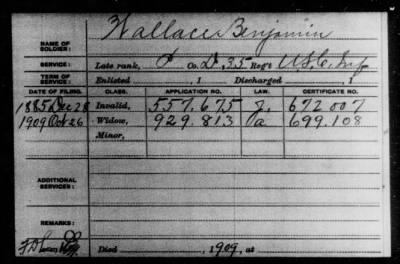 Wallace Benjamin
NAME OF SOLDIER:
SERVICE: Late rank, P Co. D, 35 Reg't U.S.C. Inf
TERM OF SERVICE: Enlisted , 1 Discharged , 1
DATE OF FILING. CLASS. APPLICATION NO. LAW. CERTIFICATE NO.
1885 Dec 28 Invalid, 557.675 J. 672 007
1909 Oct 26 Widow, 929.813 Pa 699.108
Minor,
ADDITIONAL SERVICES:
REMARKS:
Died , 1909, at